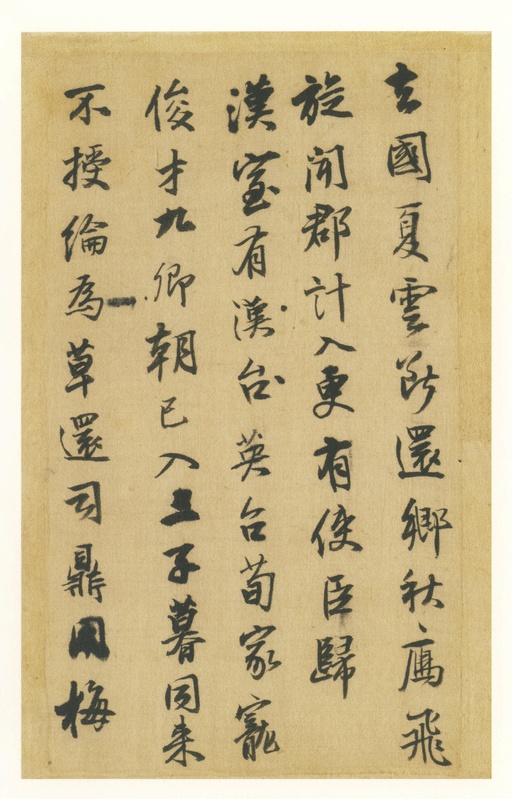 去國夏雲斷還鄉秋鴈飛
旋聞郡計入更有使臣歸
漢室有漢台英台荀家寵
俊才九卿朝已入三子暮同來
不授綸為草還司鼎用梅